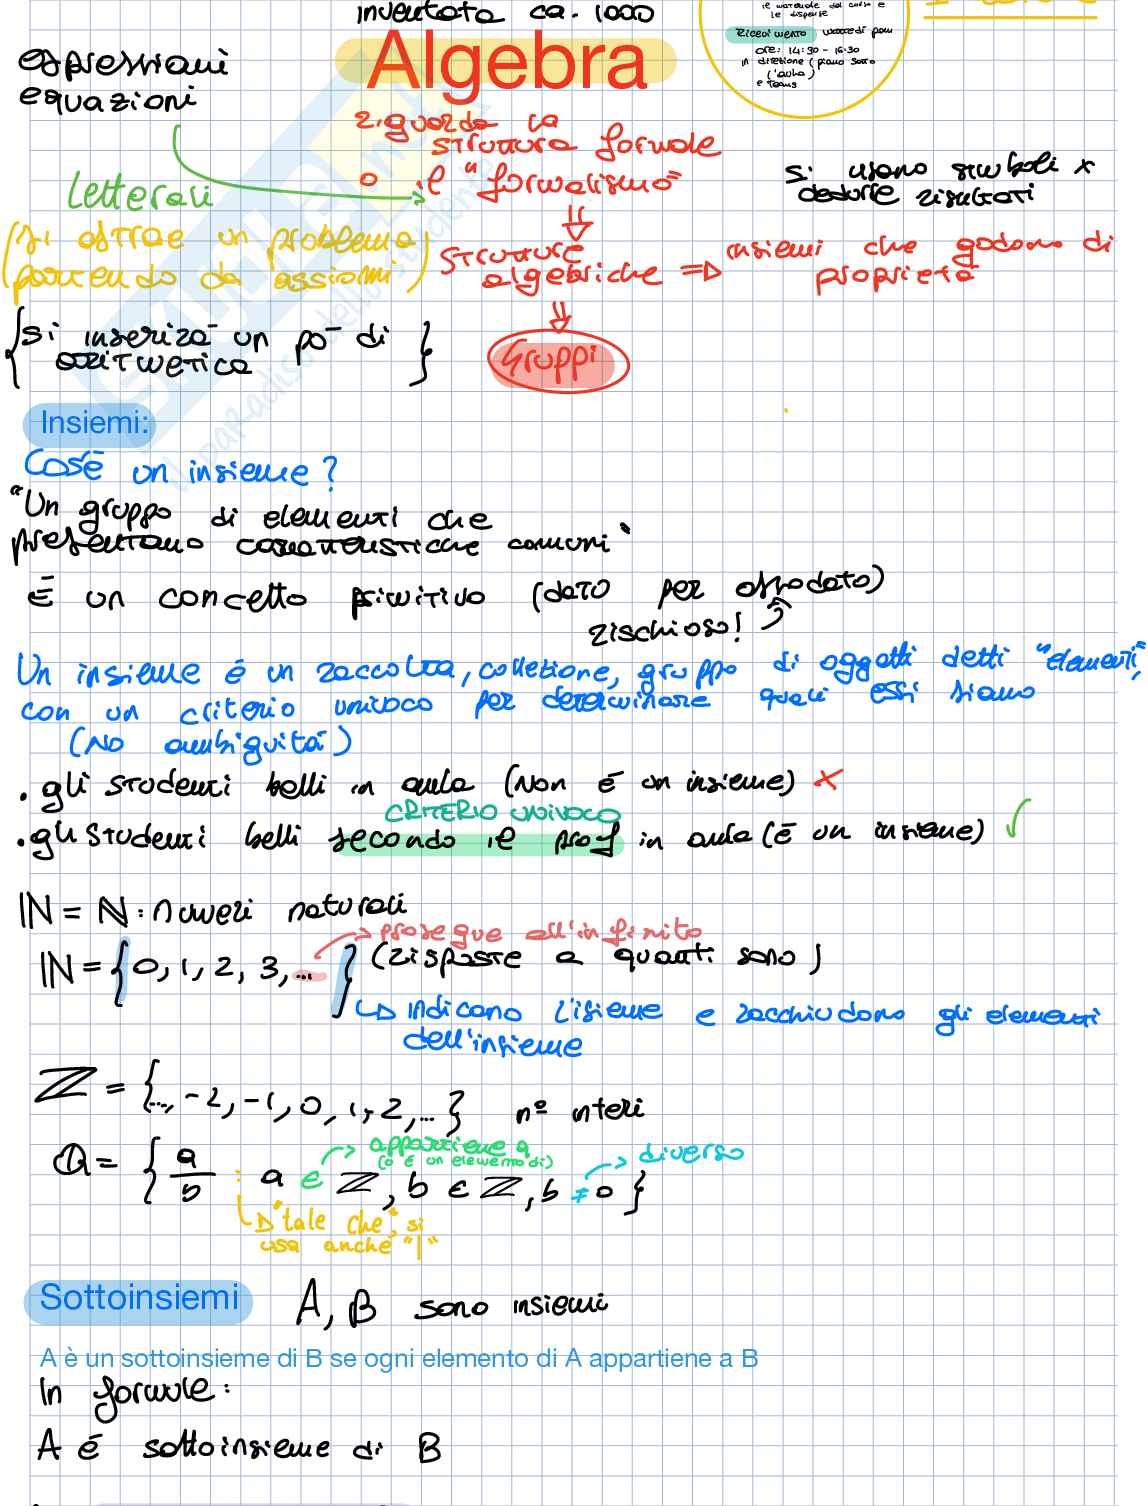 inventata ca. 1000
Algebra
il materiale del corso e
le dispense
Ricevimento
ore: 14:30 - 16:30
in direzione (piano sotto
l'aula)
e teams
espressioni
equazioni
letterali
riguarda la
struttura formale
o il "formalismo"
si usano simboli x
dedurre risultati
(si astrae un problema
partendo da assiomi)
strutture
algebriche => insiemi che godono di
proprietà
{si inserirà un pò di
aritmetica}
Gruppi
Insiemi:
Cos'è un insieme?
"Un gruppo di elementi che
presentano caratteristiche comuni"
È un concetto primitivo (dato per assodato)
rischioso!
Un insieme è un raccolta, collezione, gruppo di oggetti detti "elementi",
con un criterio univoco per determinare quali essi siano
(No ambiguità)
. gli studenti belli in aula (Non è un insieme) X
CRITERIO UNIVOCO
. gli studenti belli secondo il prof in aula (è un insieme) ✓
IN = ℕ: numeri naturali
prosegue all'infinito
IN = {0, 1, 2, 3, ...} (risposte a quanti sono)
indicano l'isieme e racchiudono gli elementi
dell'insieme
ℤ = {..., -2, -1, 0, 1, 2, ...} nº interi
appartiene a
(o è un elemento di)
diverso
ℚ = {a/b : a ∈ ℤ, b ∈ ℤ, b ≠ 0}
"tale che", si
usa anche "|"
Sottoinsiemi
A, B sono insiemi
A è un sottoinsieme di B se ogni elemento di A appartiene a B
In formule:
A è sottoinsieme di B